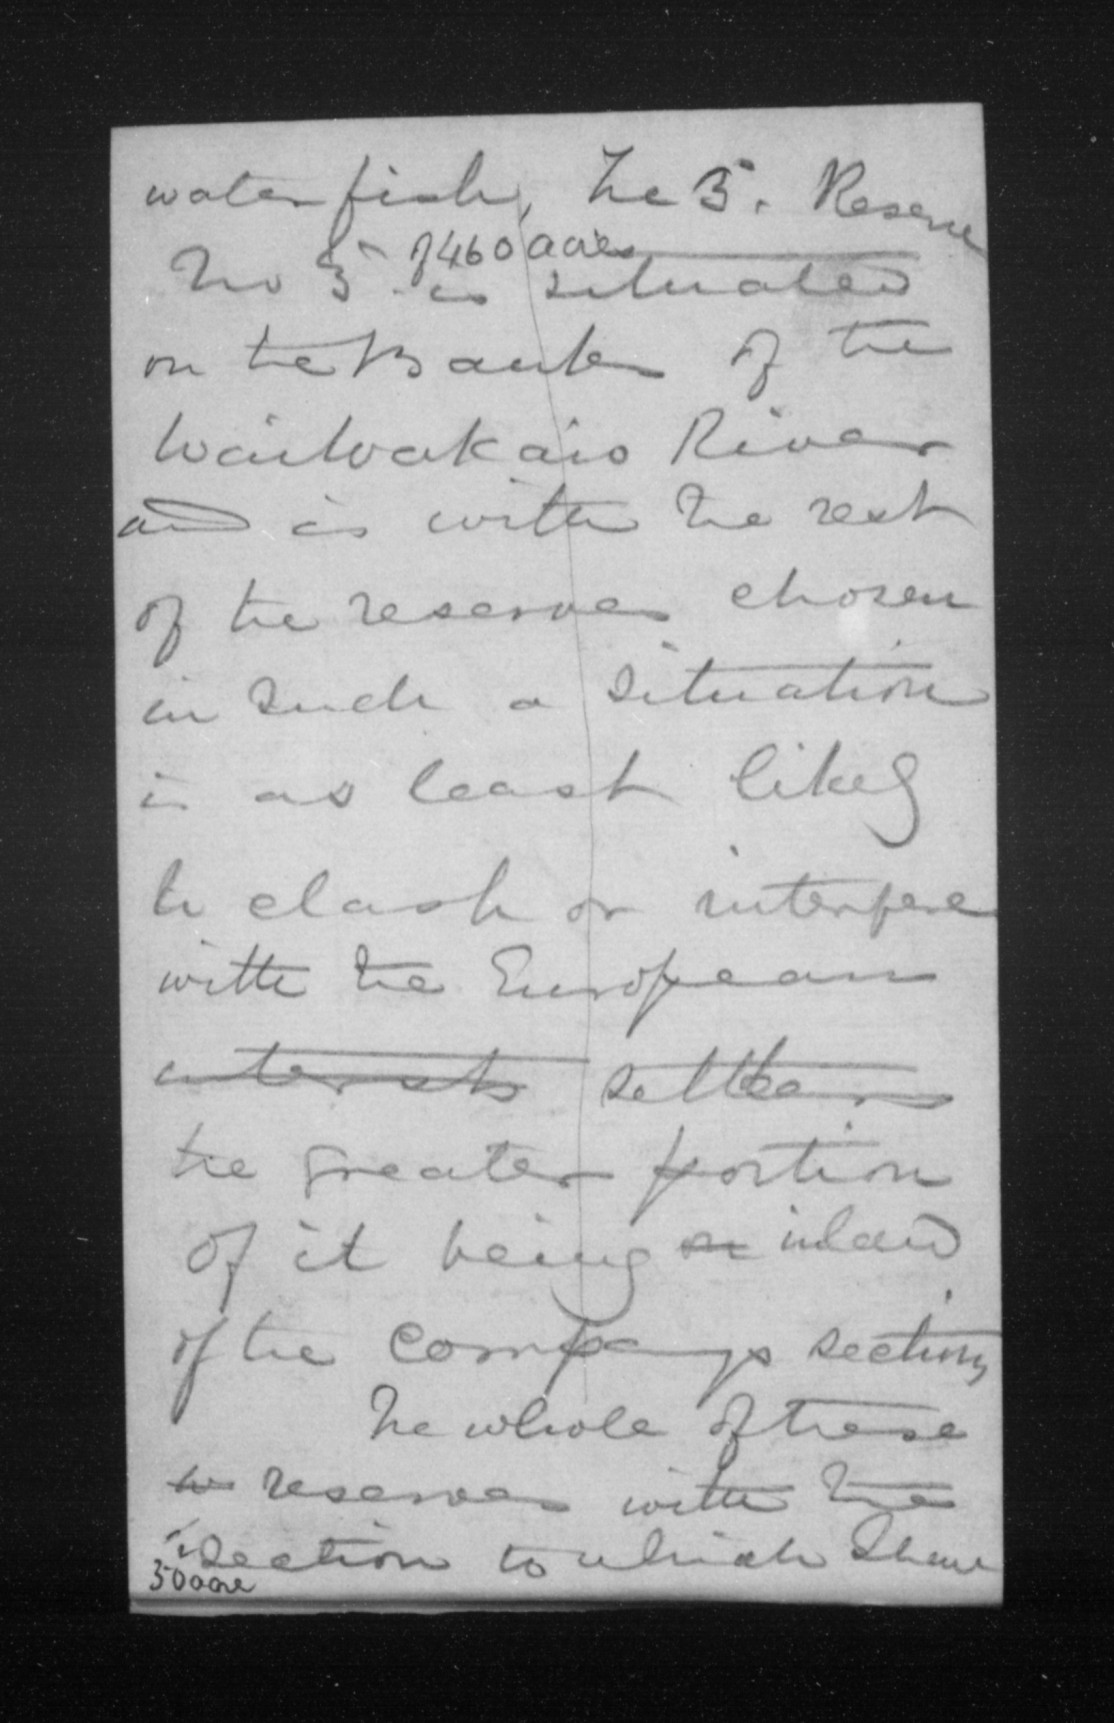 water fish, The 5. Reserve
of 460 acres
No 5 is situated
on the Banks of the
Waiwakaio River
and is with the rest
of the reserves chosen
in such a situation
is as least likely
to clash or interfere
with the European
interests settlers
the greater portion
of it being on inland
of the Companys sections
The whole of these
reserves with the
section to which I have
50 acre